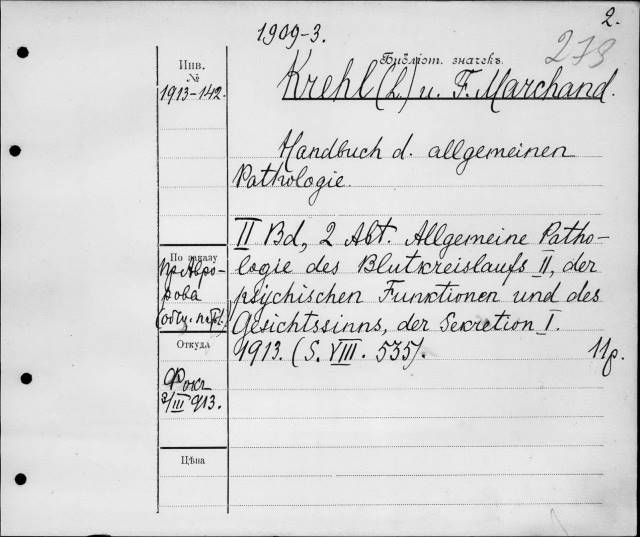 2.
1909-3.
278
Инв.
№
1913-142.
Библіот. значекъ.
Krehl (L.) u. F. Marchand.
Handbuch d. allgemeinen
Pathologie.
II Bd, 2 Abt. Allgemeine Patho-
logie des Blutkreislaufs II, der
psychischen Funktionen und des
Gesichtssinns, der Sekretion I.
1913. (S. VIII. 535).
11р.
По заказу
пр. Авро-
рова
(общ. пат.)
Откуда
Фокъ
3/III 913.
Цѣна